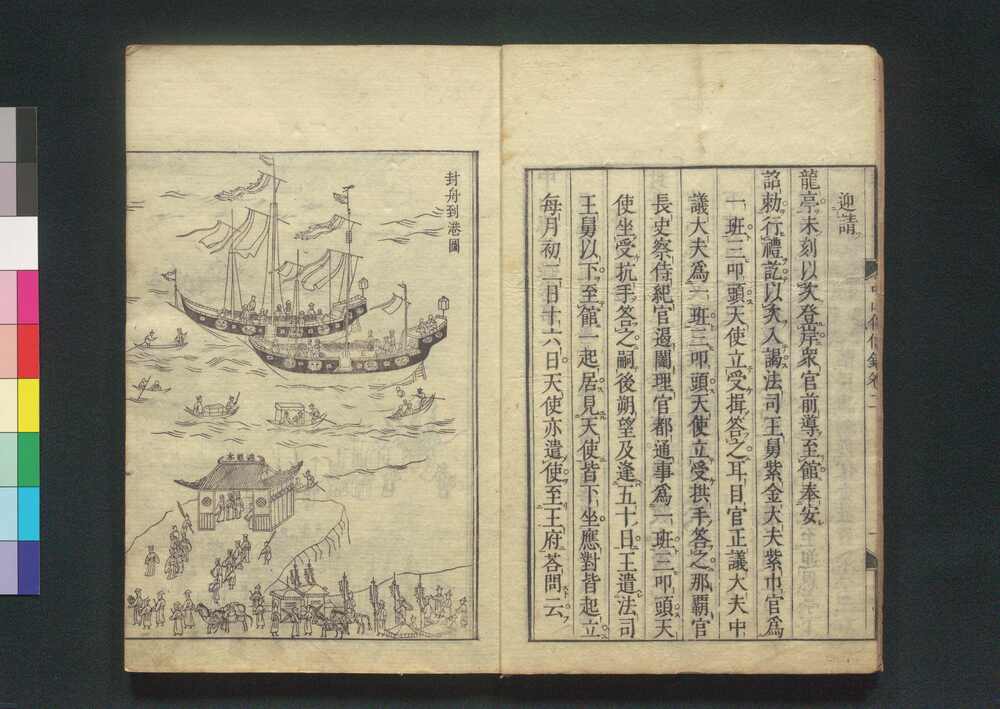 迎請
龍亭未刻以次登岸衆官前導至館奉安
詔勅行禮訖以次入謁法司王舅紫金大夫紫巾官爲
一班三叩頭天使立受揖答之耳目官正議大夫中
議大夫爲一班三叩頭天使立受拱手答之那覇官
長史察侍紀官遏闥理官都通事爲一班三叩頭天
使坐受抗手答之嗣後朔望及逢五十日王遣法司
王舅以下至館一起居見天使皆下坐應對皆起立
每月初二日十六日天使亦遣使至王府荅問云
中山傳信錄卷二
封舟到港圖